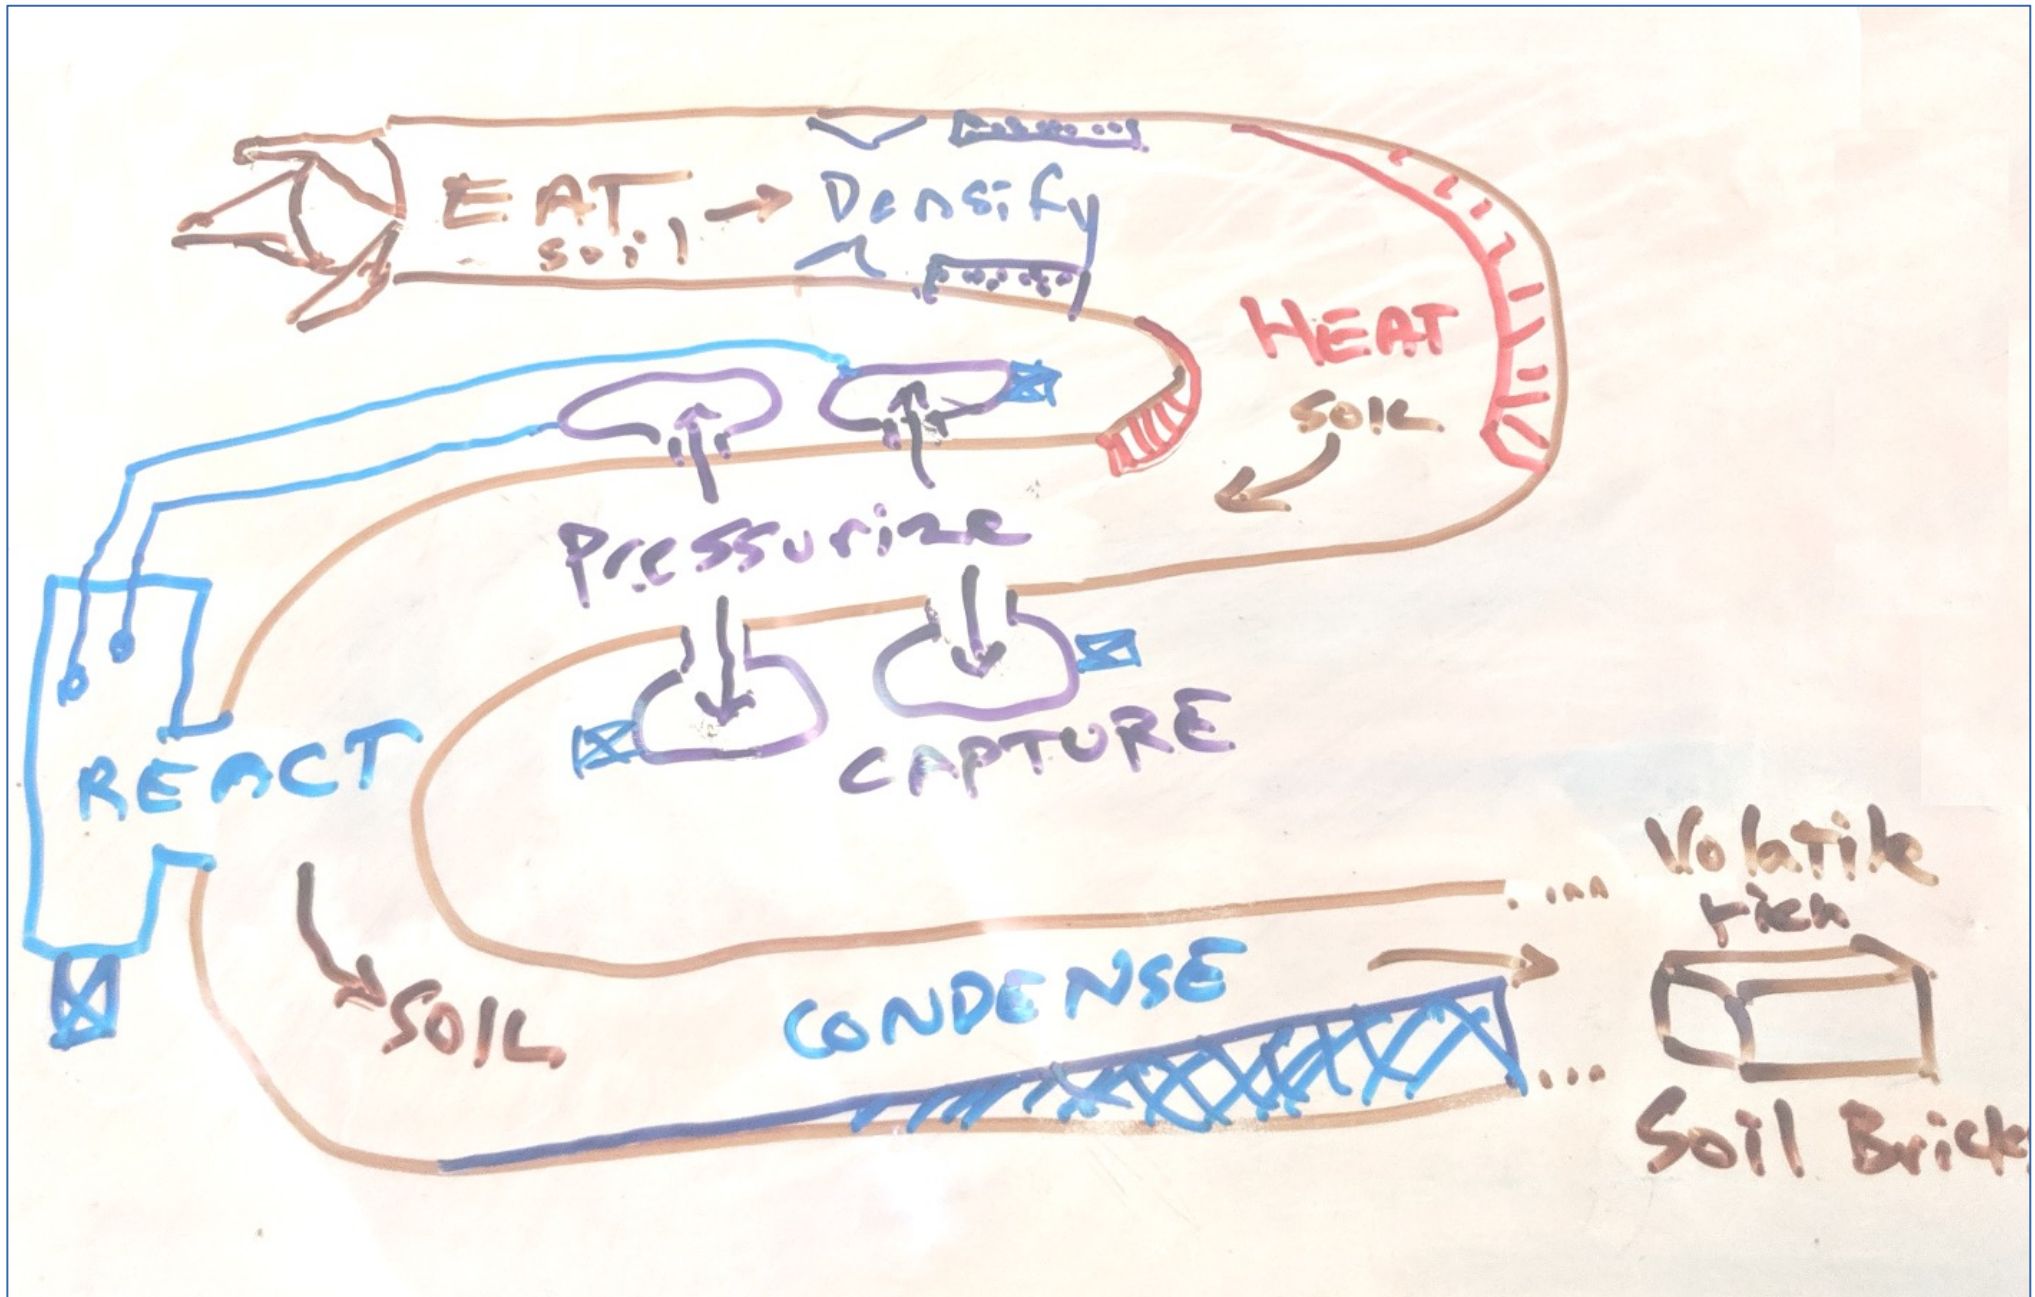 EAT
Soil
Densify
HEAT
SOIL
Pressurize
CAPTURE
REACT
SOIL
CONDENSE
Volatile
rich
Soil Brick